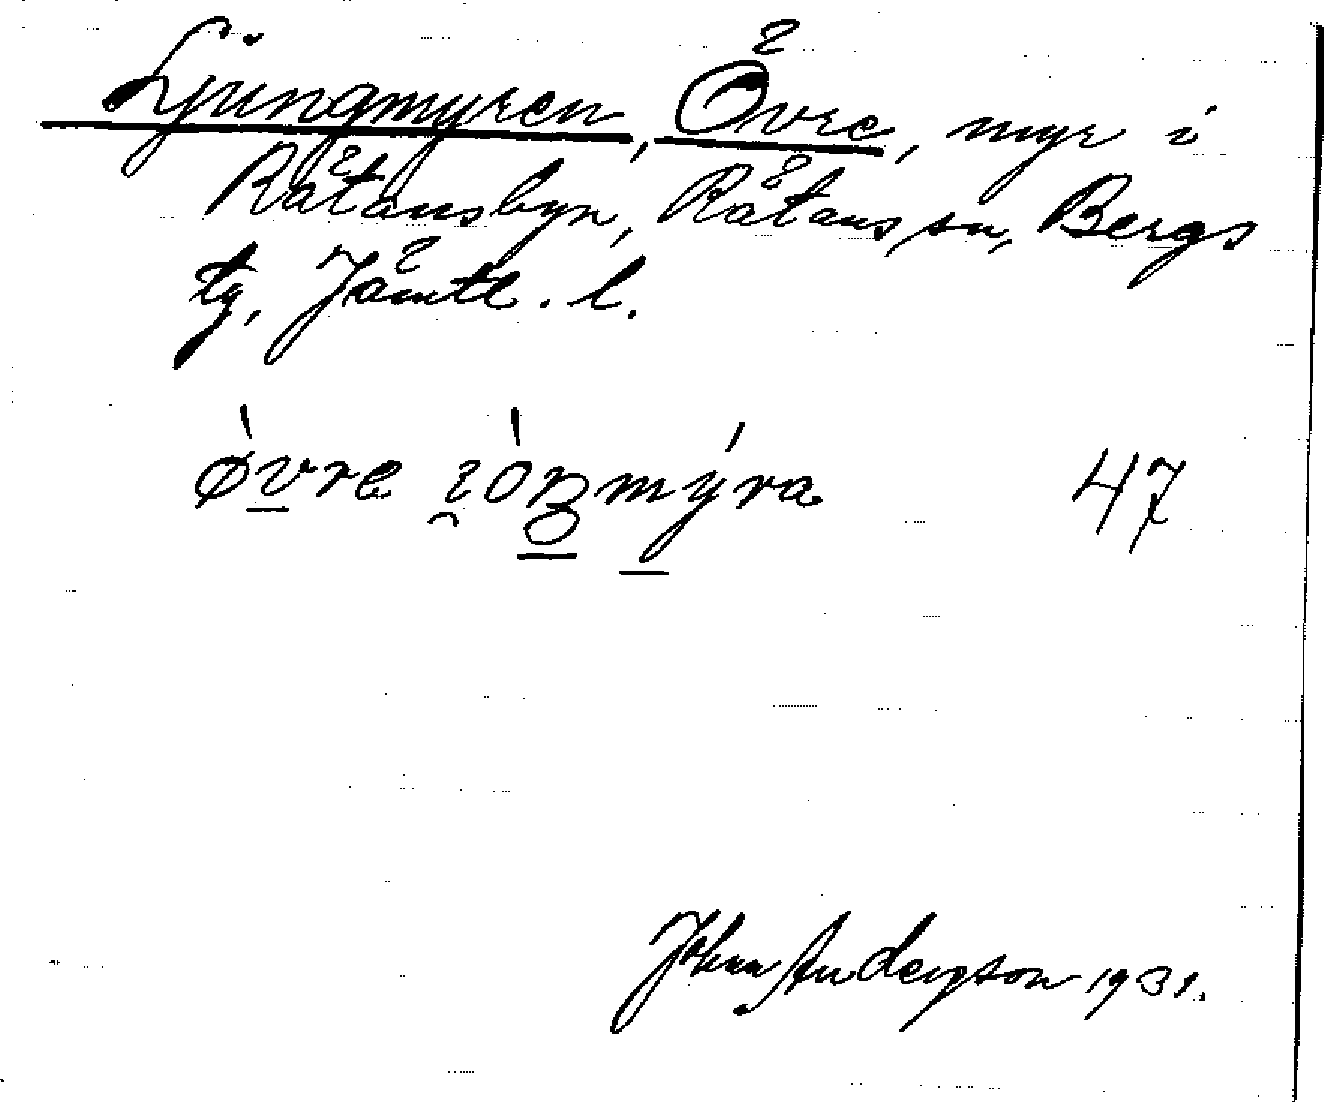 Ljungmyren, Övre, myr i
Rätansbyn, Rätans sn, Bergs
tg, Jämtl. l.
øvre mýra 47
John Anderson 1931.